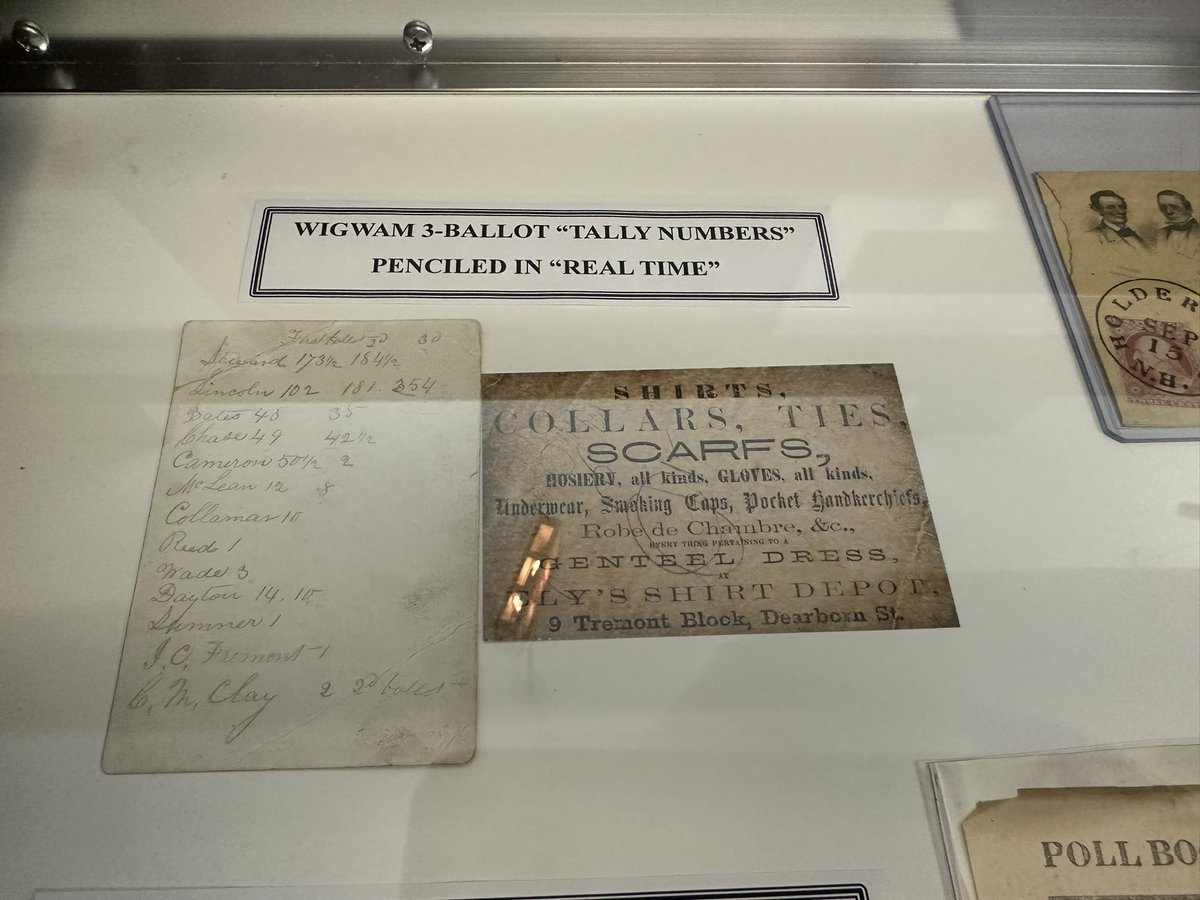 WIGWAM 3-BALLOT “TALLY NUMBERS”
PENCILED IN “REAL TIME”
First ballot 2d 3d
Seward 173½ 184½
Lincoln 102 181. 354
Bates 48 35
Chase 49 42½
Cameron 50½ 2
McLean 12 8
Collamar 10
Reed 1
Wade 3
Dayton 14. 10
Sumner 1
J. C. Fremont 1
C. M. Clay 2 2d ballot
SHIRTS,
COLLARS, TIES,
SCARFS,
HOSIERY, all kinds, GLOVES, all kinds,
Underwear, Smoking Caps, Pocket Handkerchiefs,
Robe de Chambre, &c.,
EVERY THING PERTAINING TO A
GENTEEL DRESS,
AT
ELY'S SHIRT DEPOT,
9 Tremont Block, Dearborn St.
HOLDER
SEP
15
N.H.
POLL BO